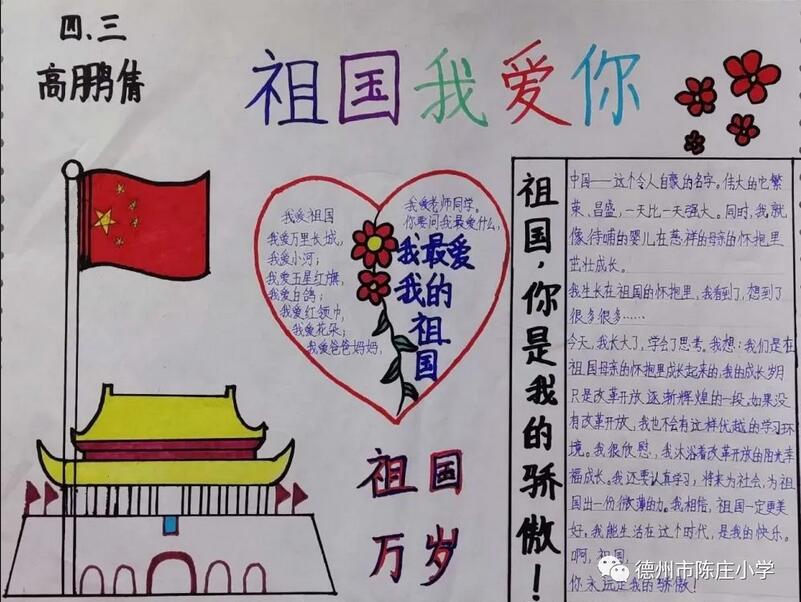 四.三
高鹏倩
祖国我爱你
我爱祖国
我爱万里长城,
我爱小河;
我爱五星红旗,
我爱白鸽;
我爱红领巾,
我爱花朵;
我爱爸爸妈妈,
我爱老师同学。
你要问我最爱什么,
我最爱
我的
祖
国
祖国
万岁
祖国,你是我的骄傲!
中国——这个令人自豪的名字,伟大的它繁
荣、昌盛,一天比一天强大。同时,我就
像待哺的婴儿在慈祥的母亲的怀抱里
茁壮成长。
我生长在祖国的怀抱里,我看到了,想到了
很多很多……
今天,我长大了,学会了思考。我想:我们是在
祖国母亲的怀抱里成长起来的,我的成长岁月
只是改革开放逐渐辉煌的一段,如果没
有改革开放,我也不会有这样优越的学习环
境。我很欣慰,我沐浴着改革开放的阳光幸
福成长。我还要认真学习,将来为社会,为祖
国出一份微薄的力。我相信,祖国一定更美
好。我能生活在这个时代,是我的快乐。
啊,祖国,
你永远是我的骄傲!
德州市陈庄小学